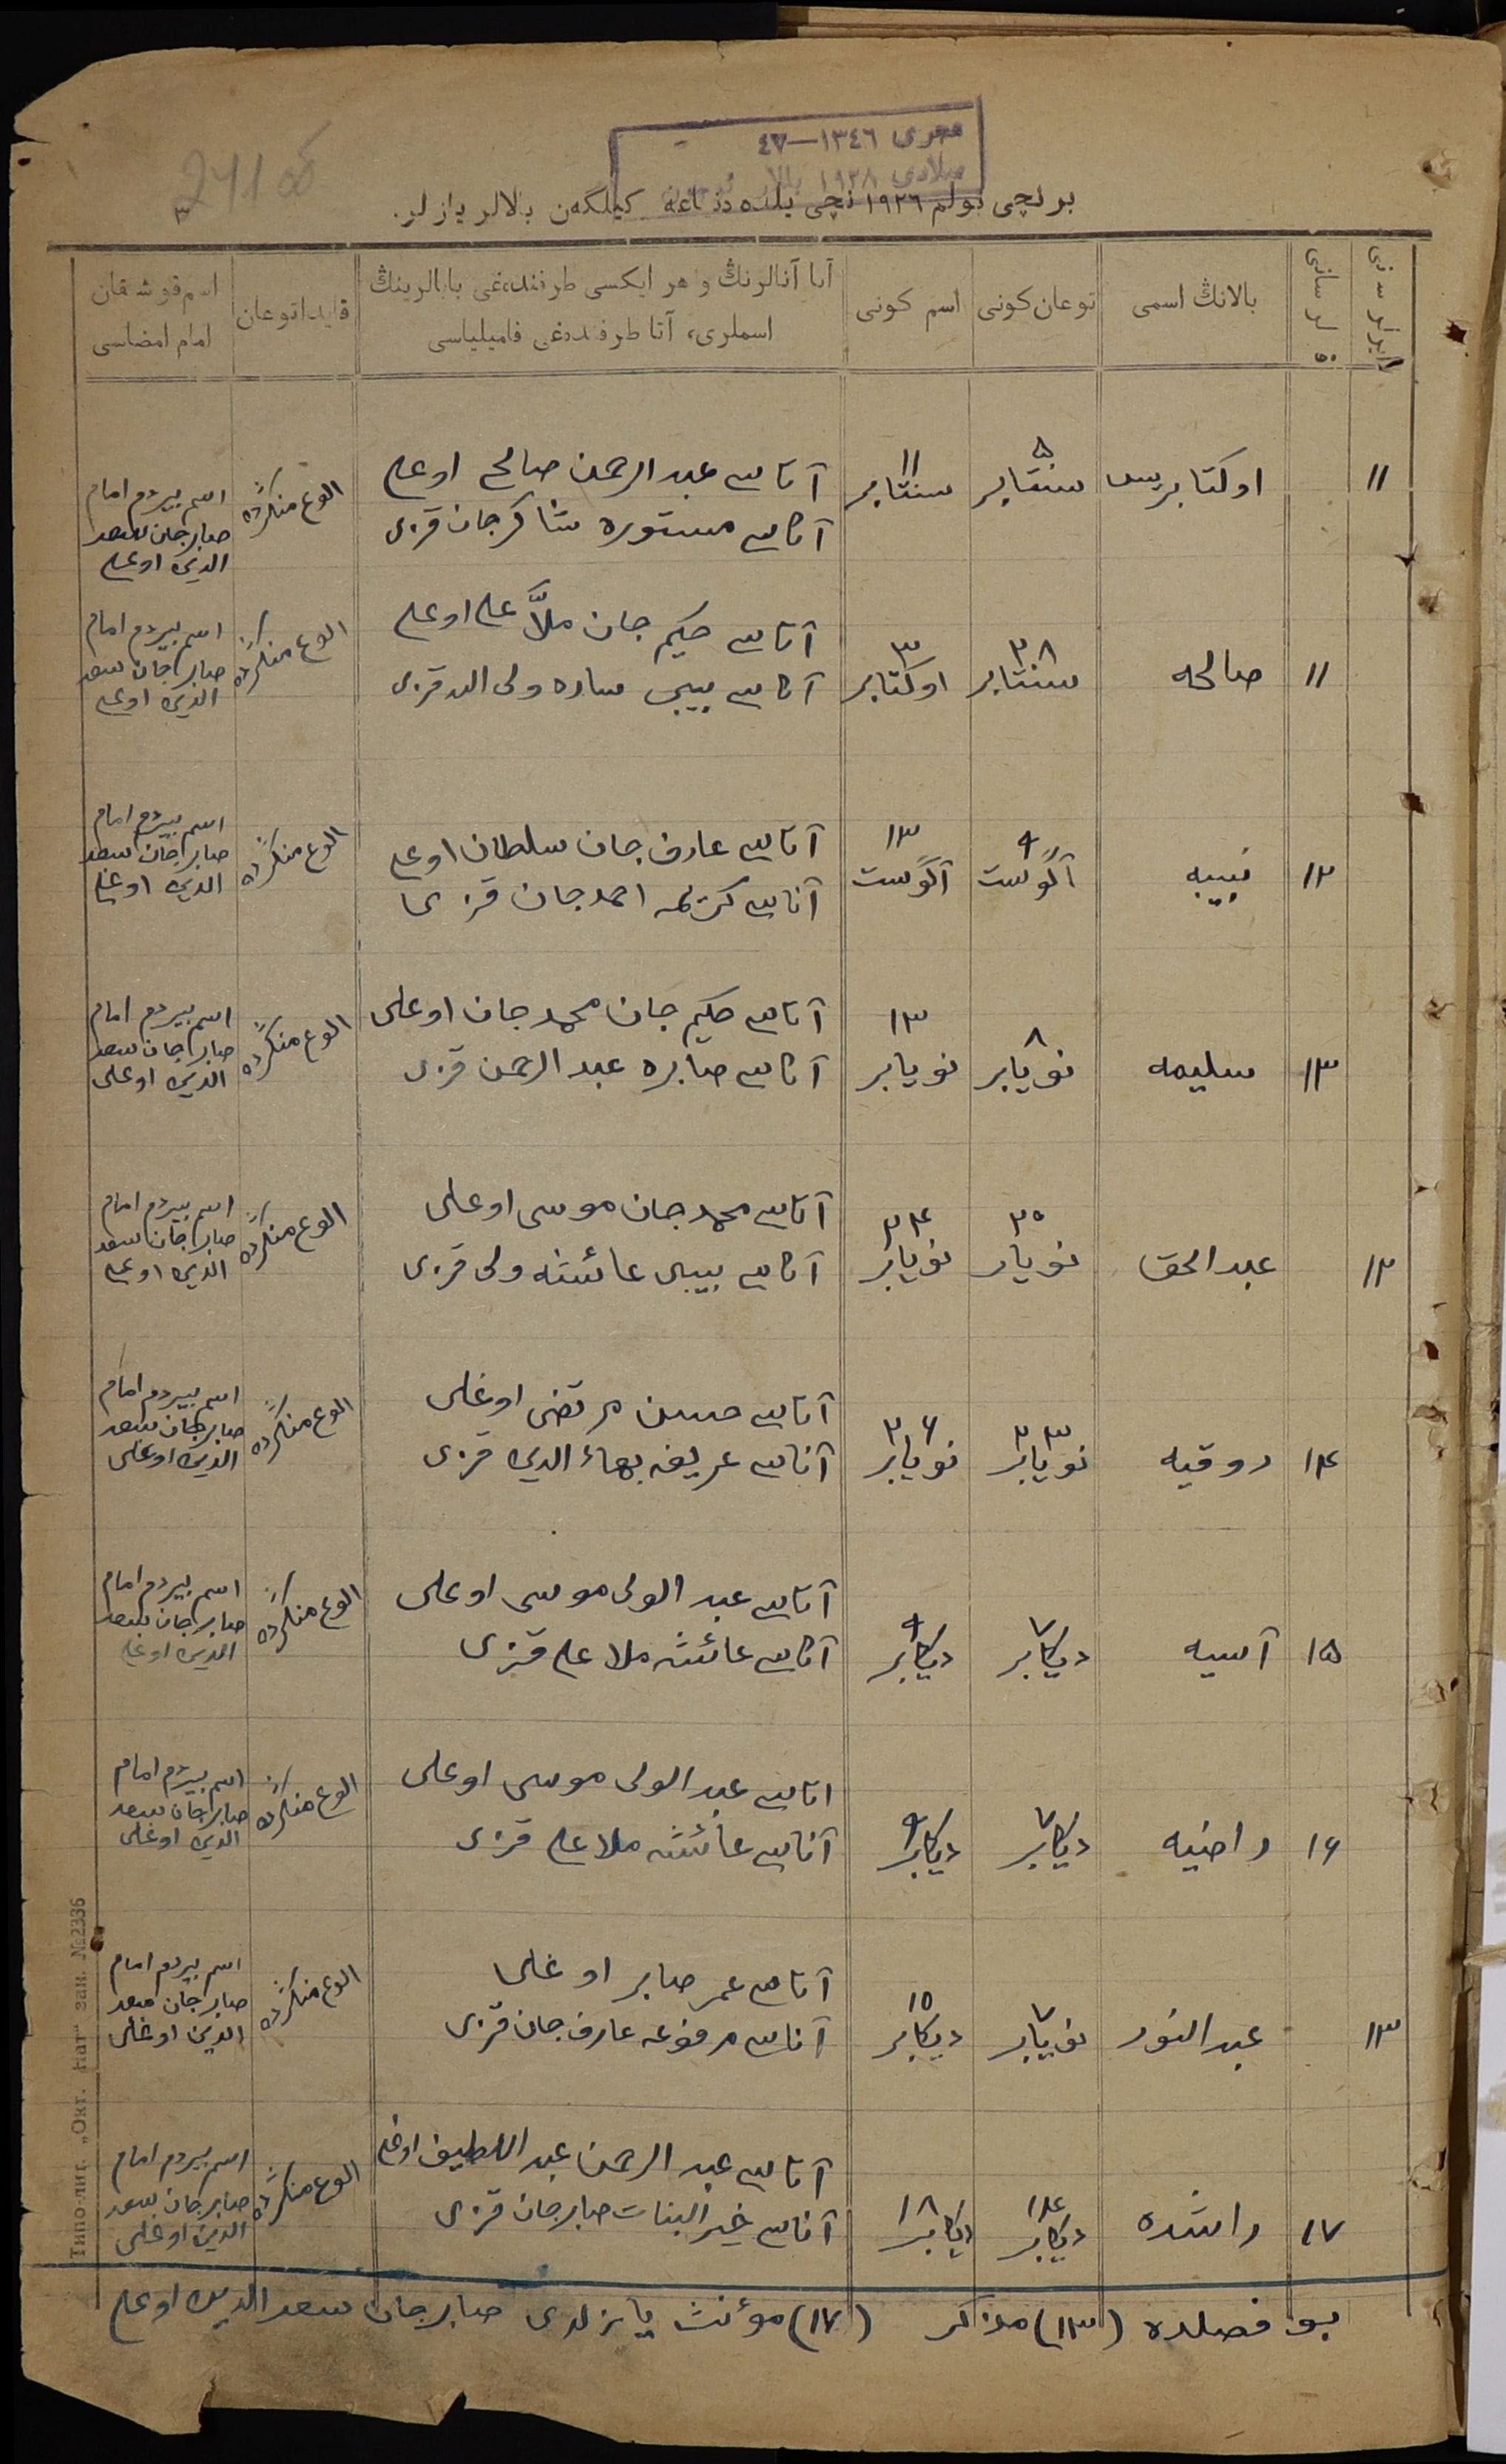 هجری ١٣٤٦—٤٧
میلادی ١٩٢٨
برنچی بولم ١٩٢٦ نچی یلده دنیاغه کیلگەن بالالر یازلر.
بالانڭ اسمی
توعان کونی
اسم کونی
آتا آنالرنڭ و هر ایکسی طرفندەغی بابالرینڭ
اسملری، آتا طرفندەغی فامیلیاسی
قایدا توعان
اسم قوشقان
امام امضاسی
١١
اوکتابریس
٥ سنتابر
١١ سنتابر
آتاسی عبد الرحمن صالح اوغلی
آناسی مستوره شاکرجان قزی
الوغ منگرده
اسم بیردم امام
صابرجان سعد
الدین اوغلی
١١
صالحه
٢٨ سنتابر
٣ اوکتابر
آتاسی حکیم جان ملّا علی اوغلی
آناسی بیبی ساره ولی الله قزی
الوغ منگرده
اسم بیردم امام
صابرجان سعد
الدین اوغلی
١٢
نبیبه
٩ آگوست
١٣ آگوست
آتاسی عارف جان سلطان اوغلی
آناسی کریمه احمدجان قزی
الوغ منگرده
اسم بیردم امام
صابرجان سعد
الدین اوغلی
١٣
سلیمه
٨ نویابر
١٣ نویابر
آتاسی حکیم جان محمدجان اوغلی
آناسی صابره عبد الرحمن قزی
الوغ منگرده
اسم بیردم امام
صابرجان سعد
الدین اوغلی
١٢
عبد الحق
٢٠ نویابر
٢٤ نویابر
آتاسی محمدجان موسی اوغلی
آناسی بیبی عائشه ولی قزی
الوغ منگرده
اسم بیردم امام
صابرجان سعد
الدین اوغلی
١٤
روقیه
٢٣ نویابر
٢٦ نویابر
آتاسی حسین مرتضی اوغلی
آناسی عریفه بهاء الدین قزی
الوغ منگرده
اسم بیردم امام
صابرجان سعد
الدین اوغلی
١٥
آسیه
٧ دیکابر
٩ دیکابر
آتاسی عبد الولی موسی اوغلی
آناسی عائشه ملا علی قزی
الوغ منگرده
اسم بیردم امام
صابرجان سعد
الدین اوغلی
١٦
راضیه
٧ دیکابر
٩ دیکابر
اتاسی عبد الولی موسی اوغلی
آناسی عائشه ملا علی قزی
الوغ منگرده
اسم بیردم امام
صابرجان سعد
الدین اوغلی
١٣
عبد النور
٧ نویابر
١٥ دیکابر
آتاسی عمر صابر اوغلی
آناسی مرفوعه عارف جان قزی
الوغ منگرده
اسم بیردم امام
صابرجان سعد
الدین اوغلی
١٧
راشده
١٤ دیکابر
١٨ دیکابر
آتاسی عبد الرحمن عبد اللطیف اوغلی
آناسی خیر البنات صابرجان قزی
الوغ منگرده
اسم بیردم امام
صابرجان سعد
الدین اوغلی
بو فصلده (١٣) مذکر (١٧) مؤنث یازلدی صابرجان سعد الدین اوغلی
Типо-лит. „Окт. Нат“ зак. №2336